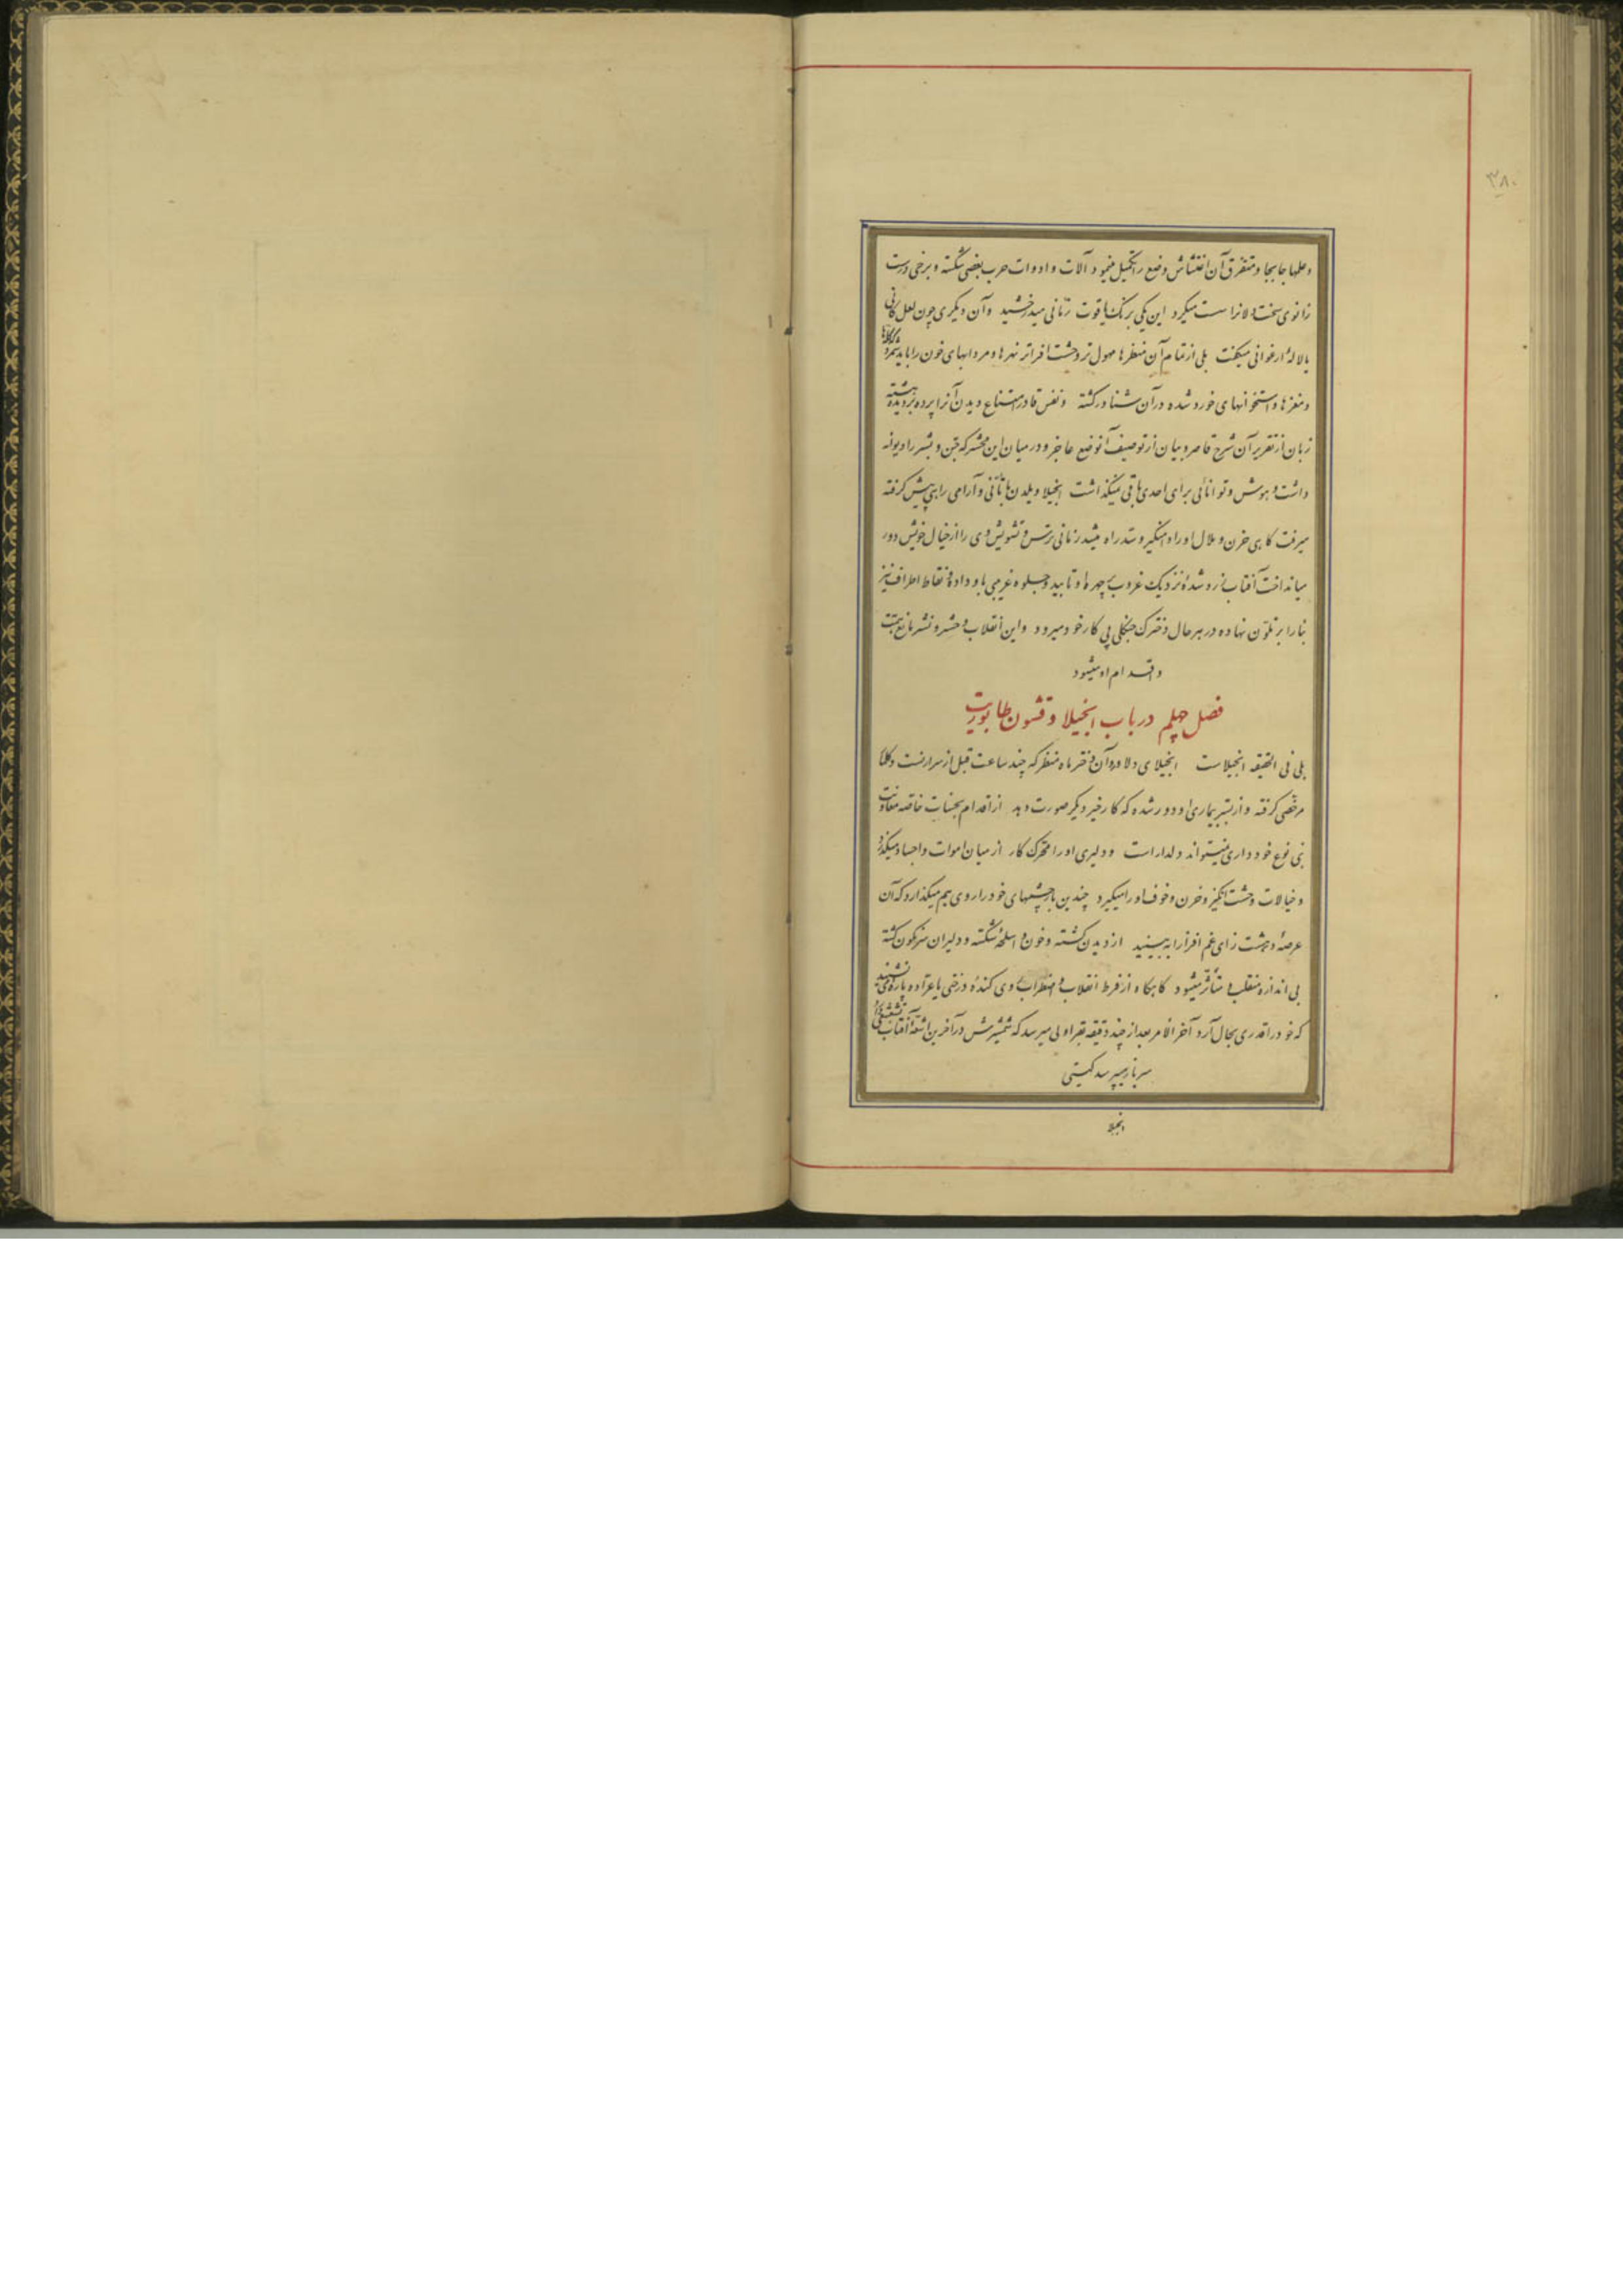 ۳۸۰
و علمها جابجا و متفرق آن اغتشاش وضع را تکمیل مینمود آلات و ادوات حرب بعضی شکسته و برخی درست
زانوی سخت دلانرا سست میکرد این یکی برنگ یاقوت رمّانی میدرخشید و آن دیگری چون لعل کانی
یا لالهٔ ارغوانی میکفت بلی از تمام آن منظرها مهول‌تر و وحشت افزاتر نهرها و مردابهای خون را باید شمرد
و مغزها و استخوانهای خورد شده در آن شناور کشته و نفس قادر امتناع دیدن آنرا پرده بر دیده
زبان از تقریر آن شرح قاصر و بیان از توصیف آنوضع عاجز و در میان این محشر که جن و بشر را دیوانه
داشت و هوش و توانائی برای احدی باقی نمیکذاشت انجیلا ویلدن با تأنی و آرامی راهی پیش کرفته
میرفت کاهی حزن و ملال او را دامنکیر و سد راه میشد زمانی ترس و تشویش وی را از خیال خویش دور
میانداخت آفتاب زرد شدهٔ نزدیک غروب بچهره او تابیده جلوه غریبی باو داده و نقاط اطراف نیز
بنا را بر تلوّن نهاده در هر حال دخترک جنگلی پی کار خود میرود و این انقلاب و حشر و نشر مانع همت
و اقدام او نمیشود
فصل چهلم در باب انجیلا و قشون طابوریت
بلی فی الحقیقه انجیلاست انجیلای دلاور و آن دختر ماه منظر که چند ساعت قبل از سر ارنست دکلنا
مرخصی کرفته و از بستر بیماری او دور شده که کار خیر دیکر صورت دهد از اقدام بحسنات خاصه معاونت
بنی نوع خودداری نمیتواند دلدار است و دلیری او را محرک کار از میان اموات و اجساد میکذرد
و خیالات وحشت انگیز و حزن و خوف او را میکیرد چندین بار چشمهای خود را روی هم میکذارد که آن
عرصهٔ دهشت زای غم افزا را نه بیند از دیدن کشته و خون و اسلحه شکسته و دلیران سرنکون کشته
بی اندازه منقلب و متأثر میشود کاهکاه از فرط انقلاب و اضطراب روی کندهٔ درختی یا عرّاده پاره می نشیند
که خود را قدری بحال آرد آخر الامر بعد از چند دقیقه بقراولی میرسد که شمشیرش در آخرین اشعّهٔ آفتاب
سرباز میپرسد کیستی
انجیلا